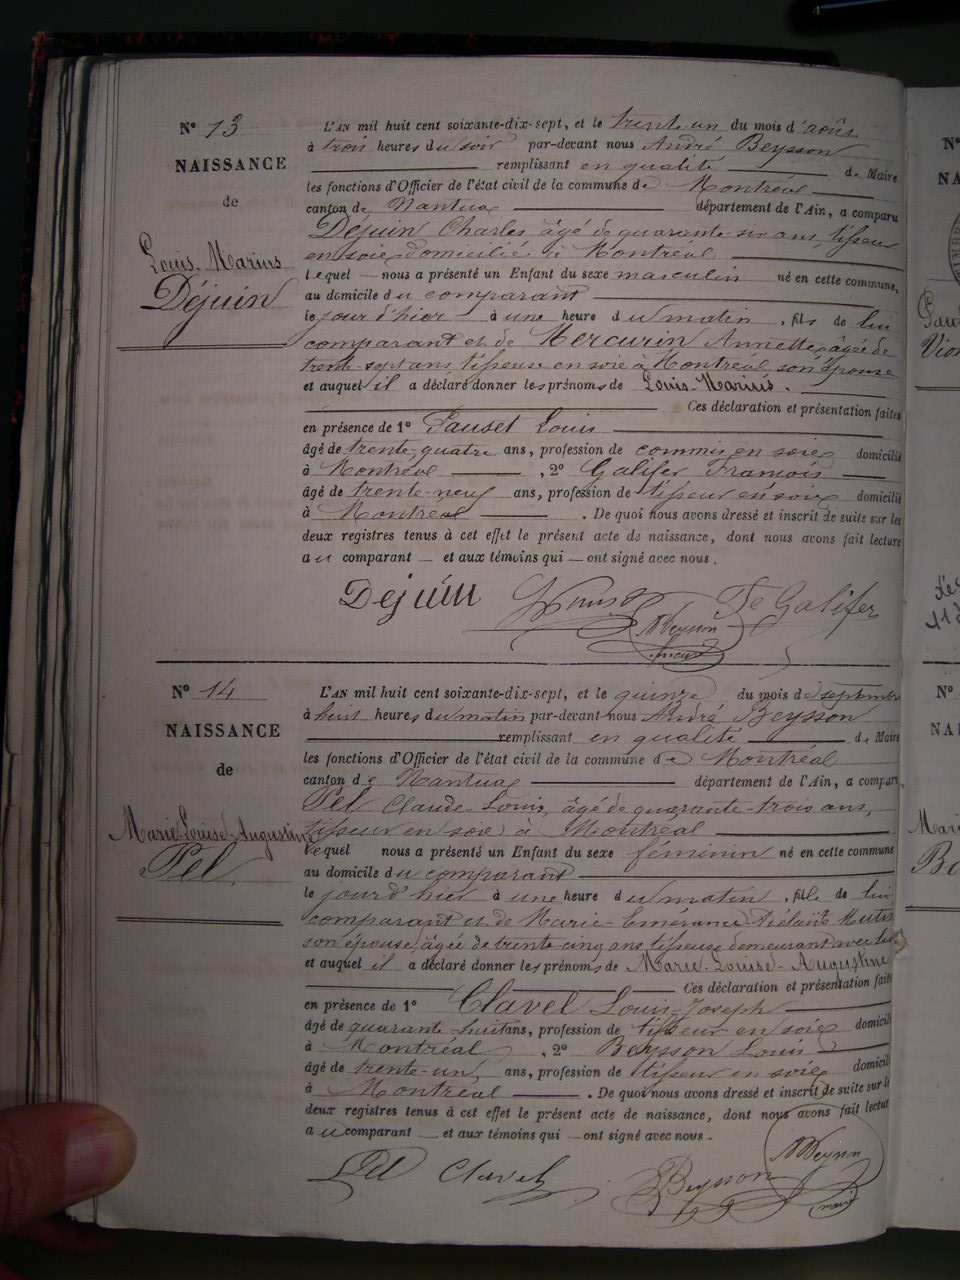 N° 13
NAISSANCE
de
Louis-Marius
Déjuin
L'AN mil huit cent soixante-dix-sept, et le trente un du mois d'août
à trois heures du soir par-devant nous André Beysson
remplissant en qualité de Maire
les fonctions d'Officier de l'état civil de la commune de Montréal
canton de Nantua département de l'Ain, a comparu
Déjuin Charles âgé de quarante-six ans, tisseur
en soie, domicilié à Montréal
lequel nous a présenté un Enfant du sexe masculin né en cette commune,
au domicile du comparant
le jour d'hier à une heure du matin, fils de lui
comparant et de Mercurin Annette, âgée de
trente-sept ans, tisseuse en soie à Montréal, son épouse
et auquel il a déclaré donner les prénoms de Louis-Marius.
Ces déclaration et présentation faites
en présence de 1° Louis
âgé de trente-quatre ans, profession de commis en soie domicilié
à Montréal, 2° Galifer François
âgé de trente-neuf ans, profession de tisseur en soie domicilié
à Montréal. De quoi nous avons dressé et inscrit de suite sur les
deux registres tenus à cet effet le présent acte de naissance, dont nous avons fait lecture
au comparant et aux témoins qui ont signé avec nous.
Dejuin Galifer
ABeysson
maire
N° 14
NAISSANCE
de
Marie-Louise-Augustine
Pel
L'AN mil huit cent soixante-dix-sept, et le quinze du mois de septembre
à huit heures du matin par-devant nous André Beysson
remplissant en qualité de Maire
les fonctions d'Officier de l'état civil de la commune de Montréal
canton de Nantua département de l'Ain, a comparu
Pel Claude-Louis, âgé de quarante-trois ans,
tisseur en soie à Montréal
lequel nous a présenté un Enfant du sexe féminin né en cette commune
au domicile du comparant
le jour d'hier à une heure du matin, fille de lui
comparant et de Marie-Emérance
son épouse, âgée de trente cinq ans, tisseuse demeurant avec lui
et auquel il a déclaré donner les prénoms de Marie-Louise-Augustine
Ces déclaration et présentation faites
en présence de 1° Clavel Louis-Joseph
âgé de quarante-huit ans, profession de tisseur en soie domicil
à Montréal, 2° Beysson Louis
âgé de trente-un ans, profession de tisseur en soie domicil
à Montréal. De quoi nous avons dressé et inscrit de suite sur l
deux registres tenus à cet effet le présent acte de naissance, dont nous avons fait lectur
au comparant et aux témoins qui ont signé avec nous.
Pel Clavel Beysson ABeysson
maire